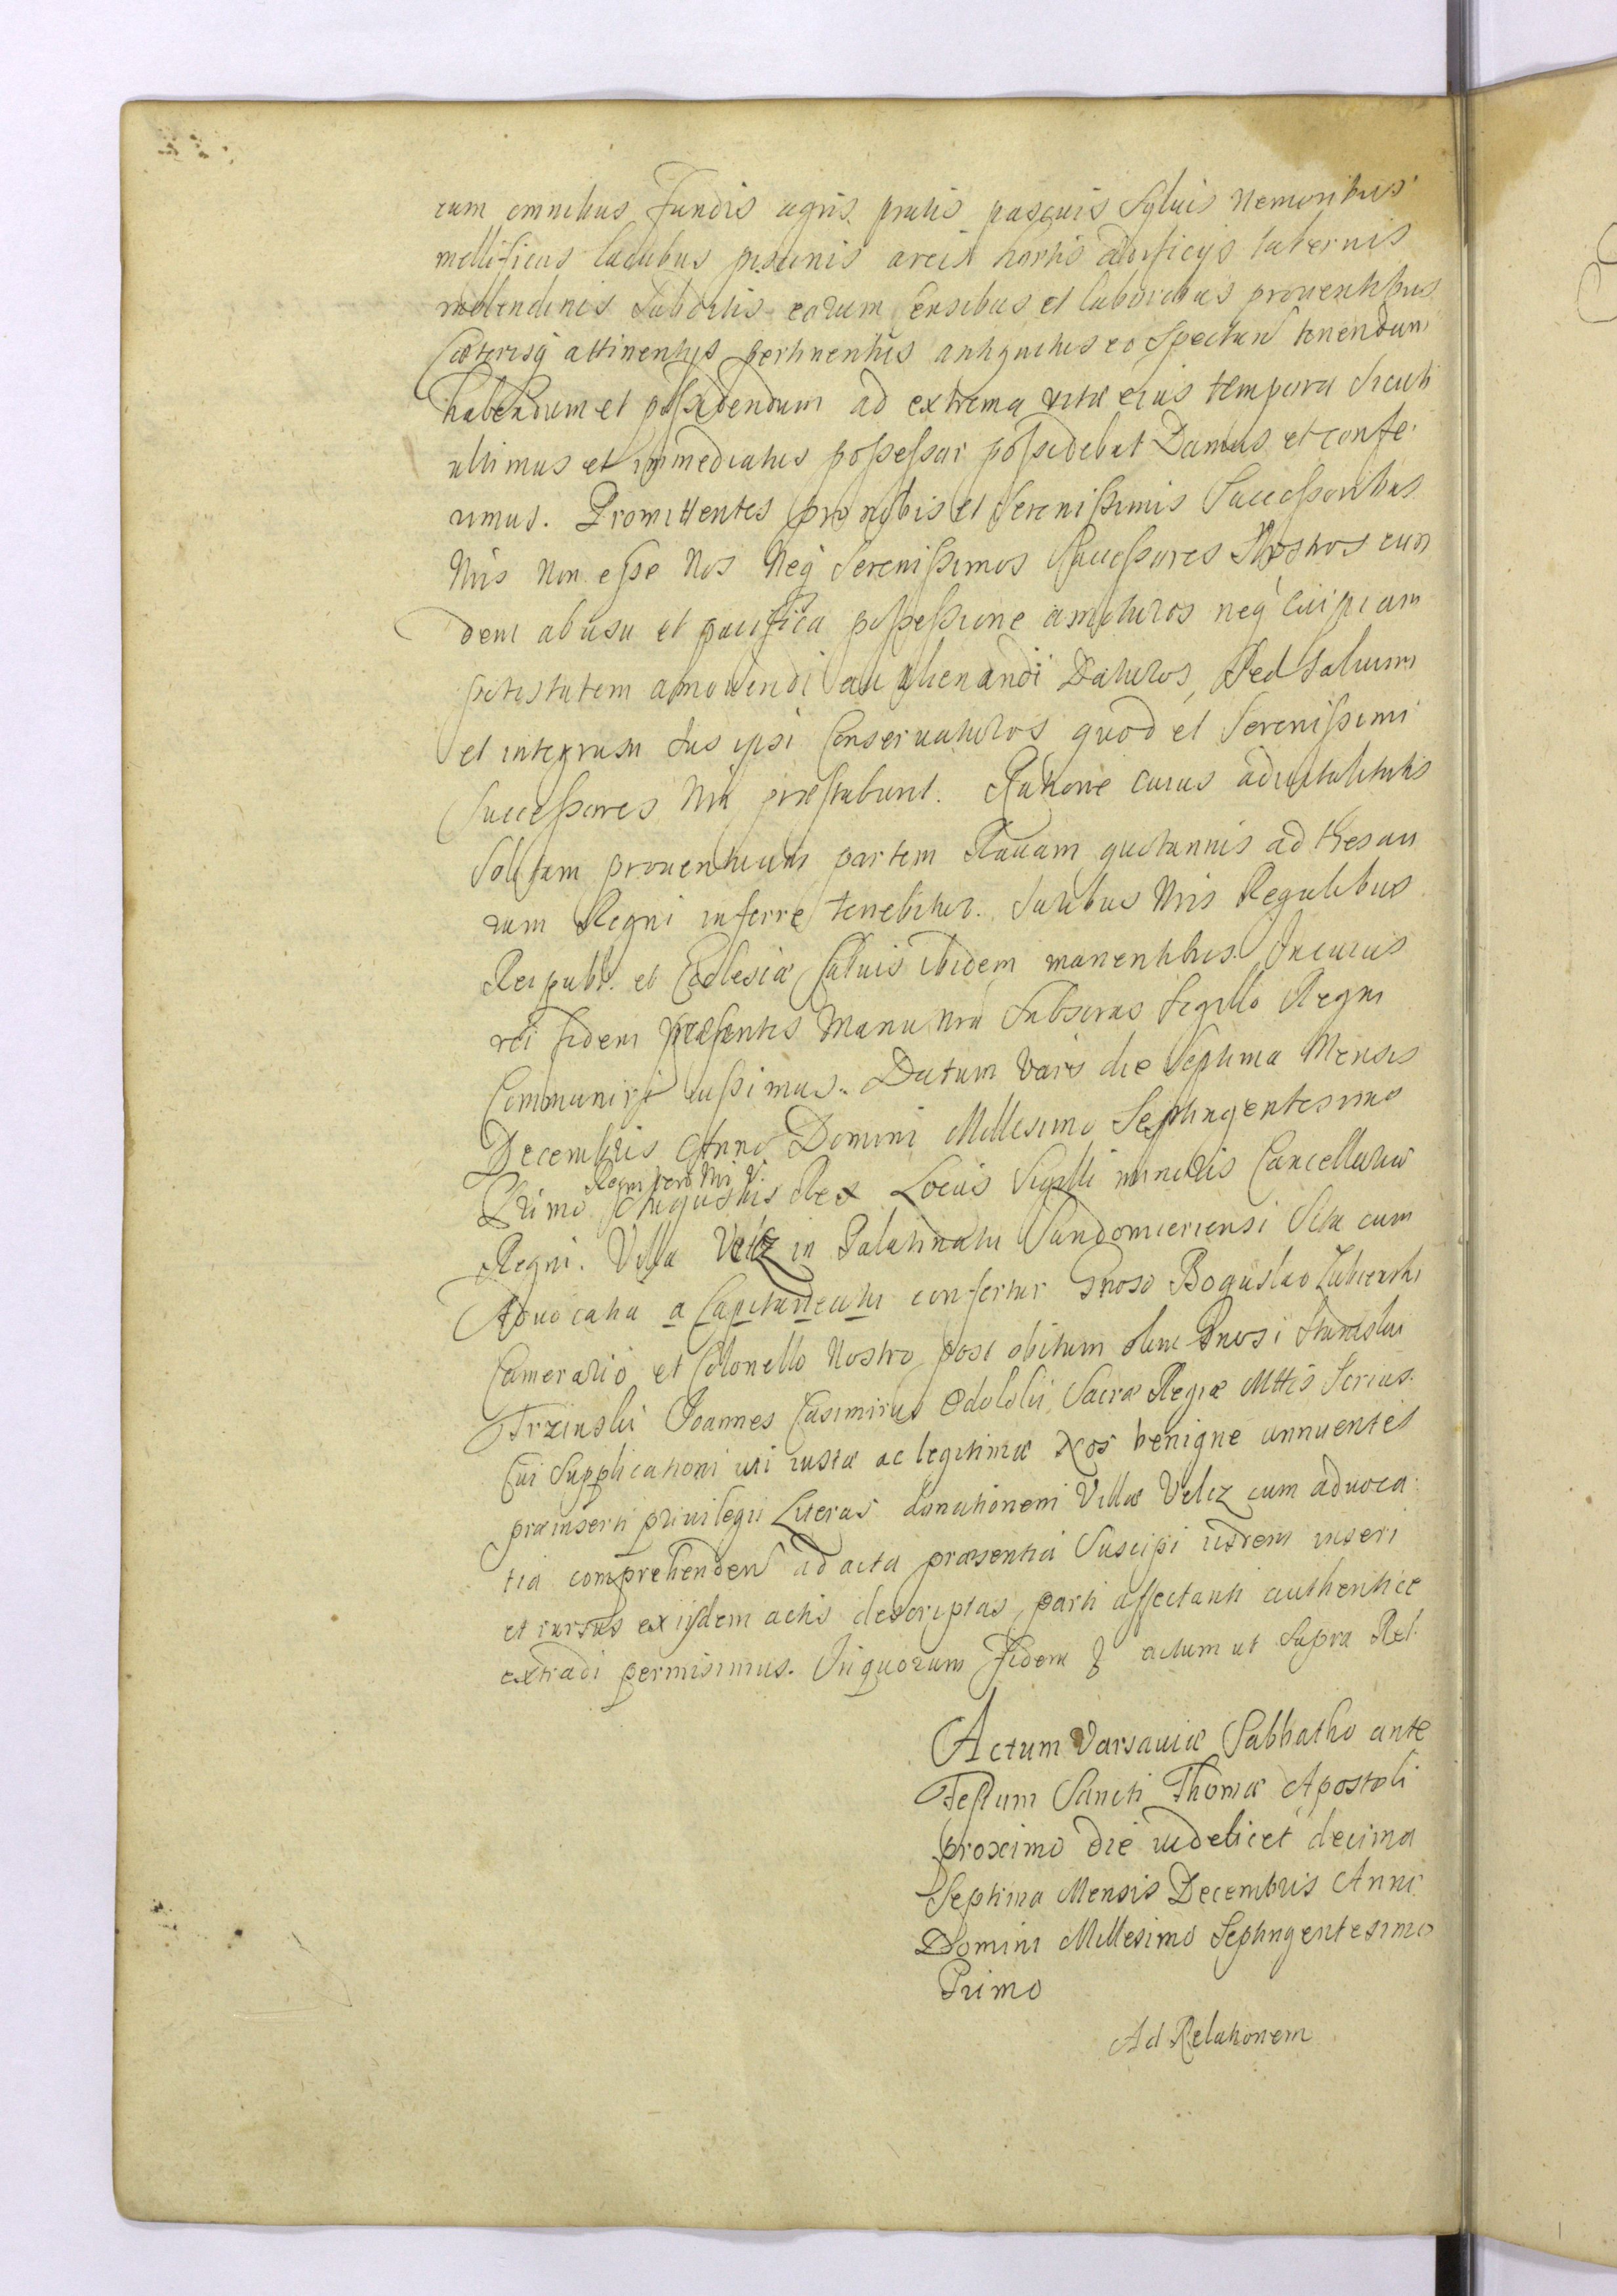 cum omnibus Fundis agris pratis pascuis Sylvis Nemoribus
mellificiis lacubus piscinis areis hortis ædificijs tabernis
molendinis Subditis eorum Censibus et laboribus prouentibus
Cæterisq attinentijs pertinentijs antiquitus eo Spectan tenendum
habendum et possidendum ad extrema vitæ eius tempora Sicuti
ultimus et immediatus possessor possidebat Damus et confe
rimus. Promittentes pro nobis et Serenissimis Successoribus
Nris Non esse Nos Neq Serenissimos Successores Nostros eun
dem ab usu et pacifica possessione amoturos neq cuipiam
potestatem amovendi aut alienandi Daturos, Sed Saluum
et integrum Jus ipsi Conservaturos quod et Serenissimi
Successores Nri præstabunt. Ratione cuius advitalitatis
Solitam prouentuum partem Rauam quotannis ad thesau
rum Regni inferre tenebitur. Juribus Nris Regalibus
Reipubl. et Ecclesiæ Saluis ibidem manentibus. In cuius
rei fidem præsentes Manu Nra Subscras Sigillo Regni
Communiri iussimus. Datum Vars die Septima Mensis
Decembris Anno Domini Millesimo Septingentesimo
Regni vero Nri V.
Primo Augustus Rex Locus Sigilli minoris Cancellariæ
Regni. Villa Velcz in Palatinatu Sandomieriensi Sita cum
Aduocatia a Capitaneatu confertur Gnoso Boguslao Lubienski
Camerario et Colonello Nostro post obitum olim Gnosi Stanislai
Trzinski Joannes Casimirus Sacræ Regiæ Mttis Scrius.
Cui Supplicationi uti iustæ ac legitimæ Nos benigne annuentes
præinserti priuilegii Literas donationem Villæ Velcz cum aduoca
tia comprehenden ad acta præsentia Suscipi iisdem inseri
et rursus ex iisdem actis descriptas, parti affectanti authentice
extradi permisimus. In quorum Fidem & actum ut Supra Rel.
Actum Varsauiæ Sabbatho ante
Festum Sancti Thomæ Apostoli
proximo die videlicet decima
Septima Mensis Decembris Anno
Domini Millesimo Septingentesimo
Primo
Ad Relationem